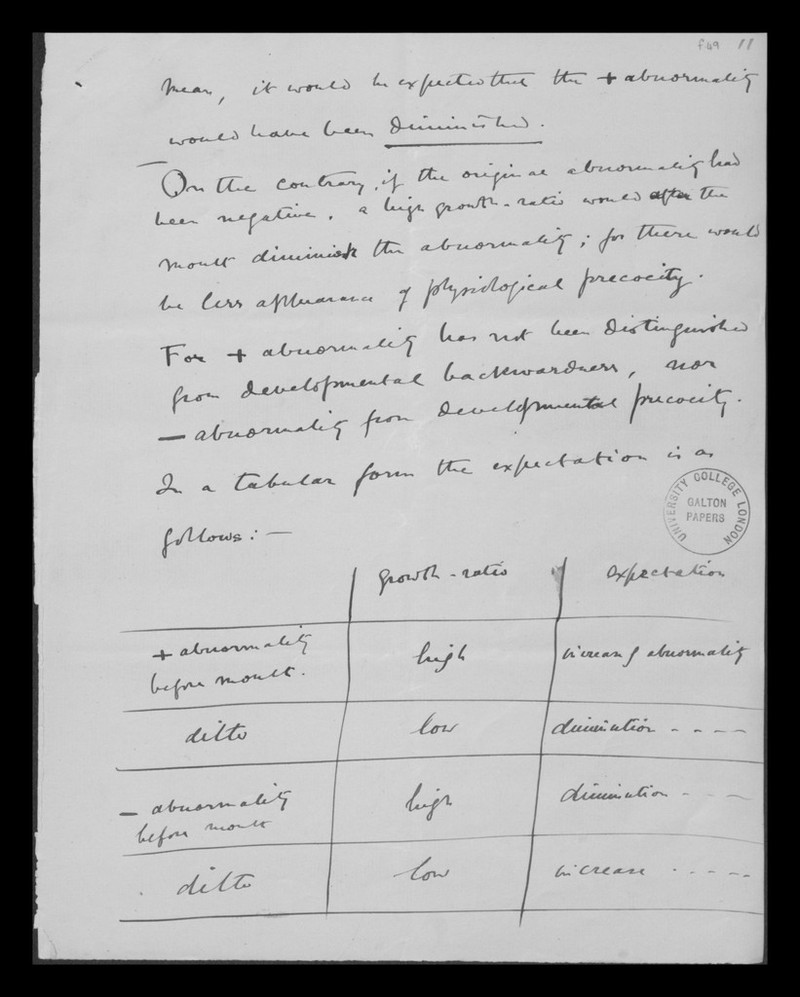 f.49 11
mean, it would be expected that the + abnormality
would have been diminished.
On the contrary, if the original abnormality had
been negative, a high growth-ratio would after the
moult diminish the abnormality; for there would
be less appearance of physiological precocity.
For + abnormality has not been distinguished
from developmental backwardness, nor
— abnormality from developmental precocity.
In a tabular form the expectation is as
follows: —
UNIVERSITY COLLEGE LONDON
GALTON
PAPERS
growth-ratio expectation
+ abnormality
before moult. high increase of abnormality
ditto low diminution - - - -
— abnormality
before moult high diminution - - -
ditto low increase - - - - -